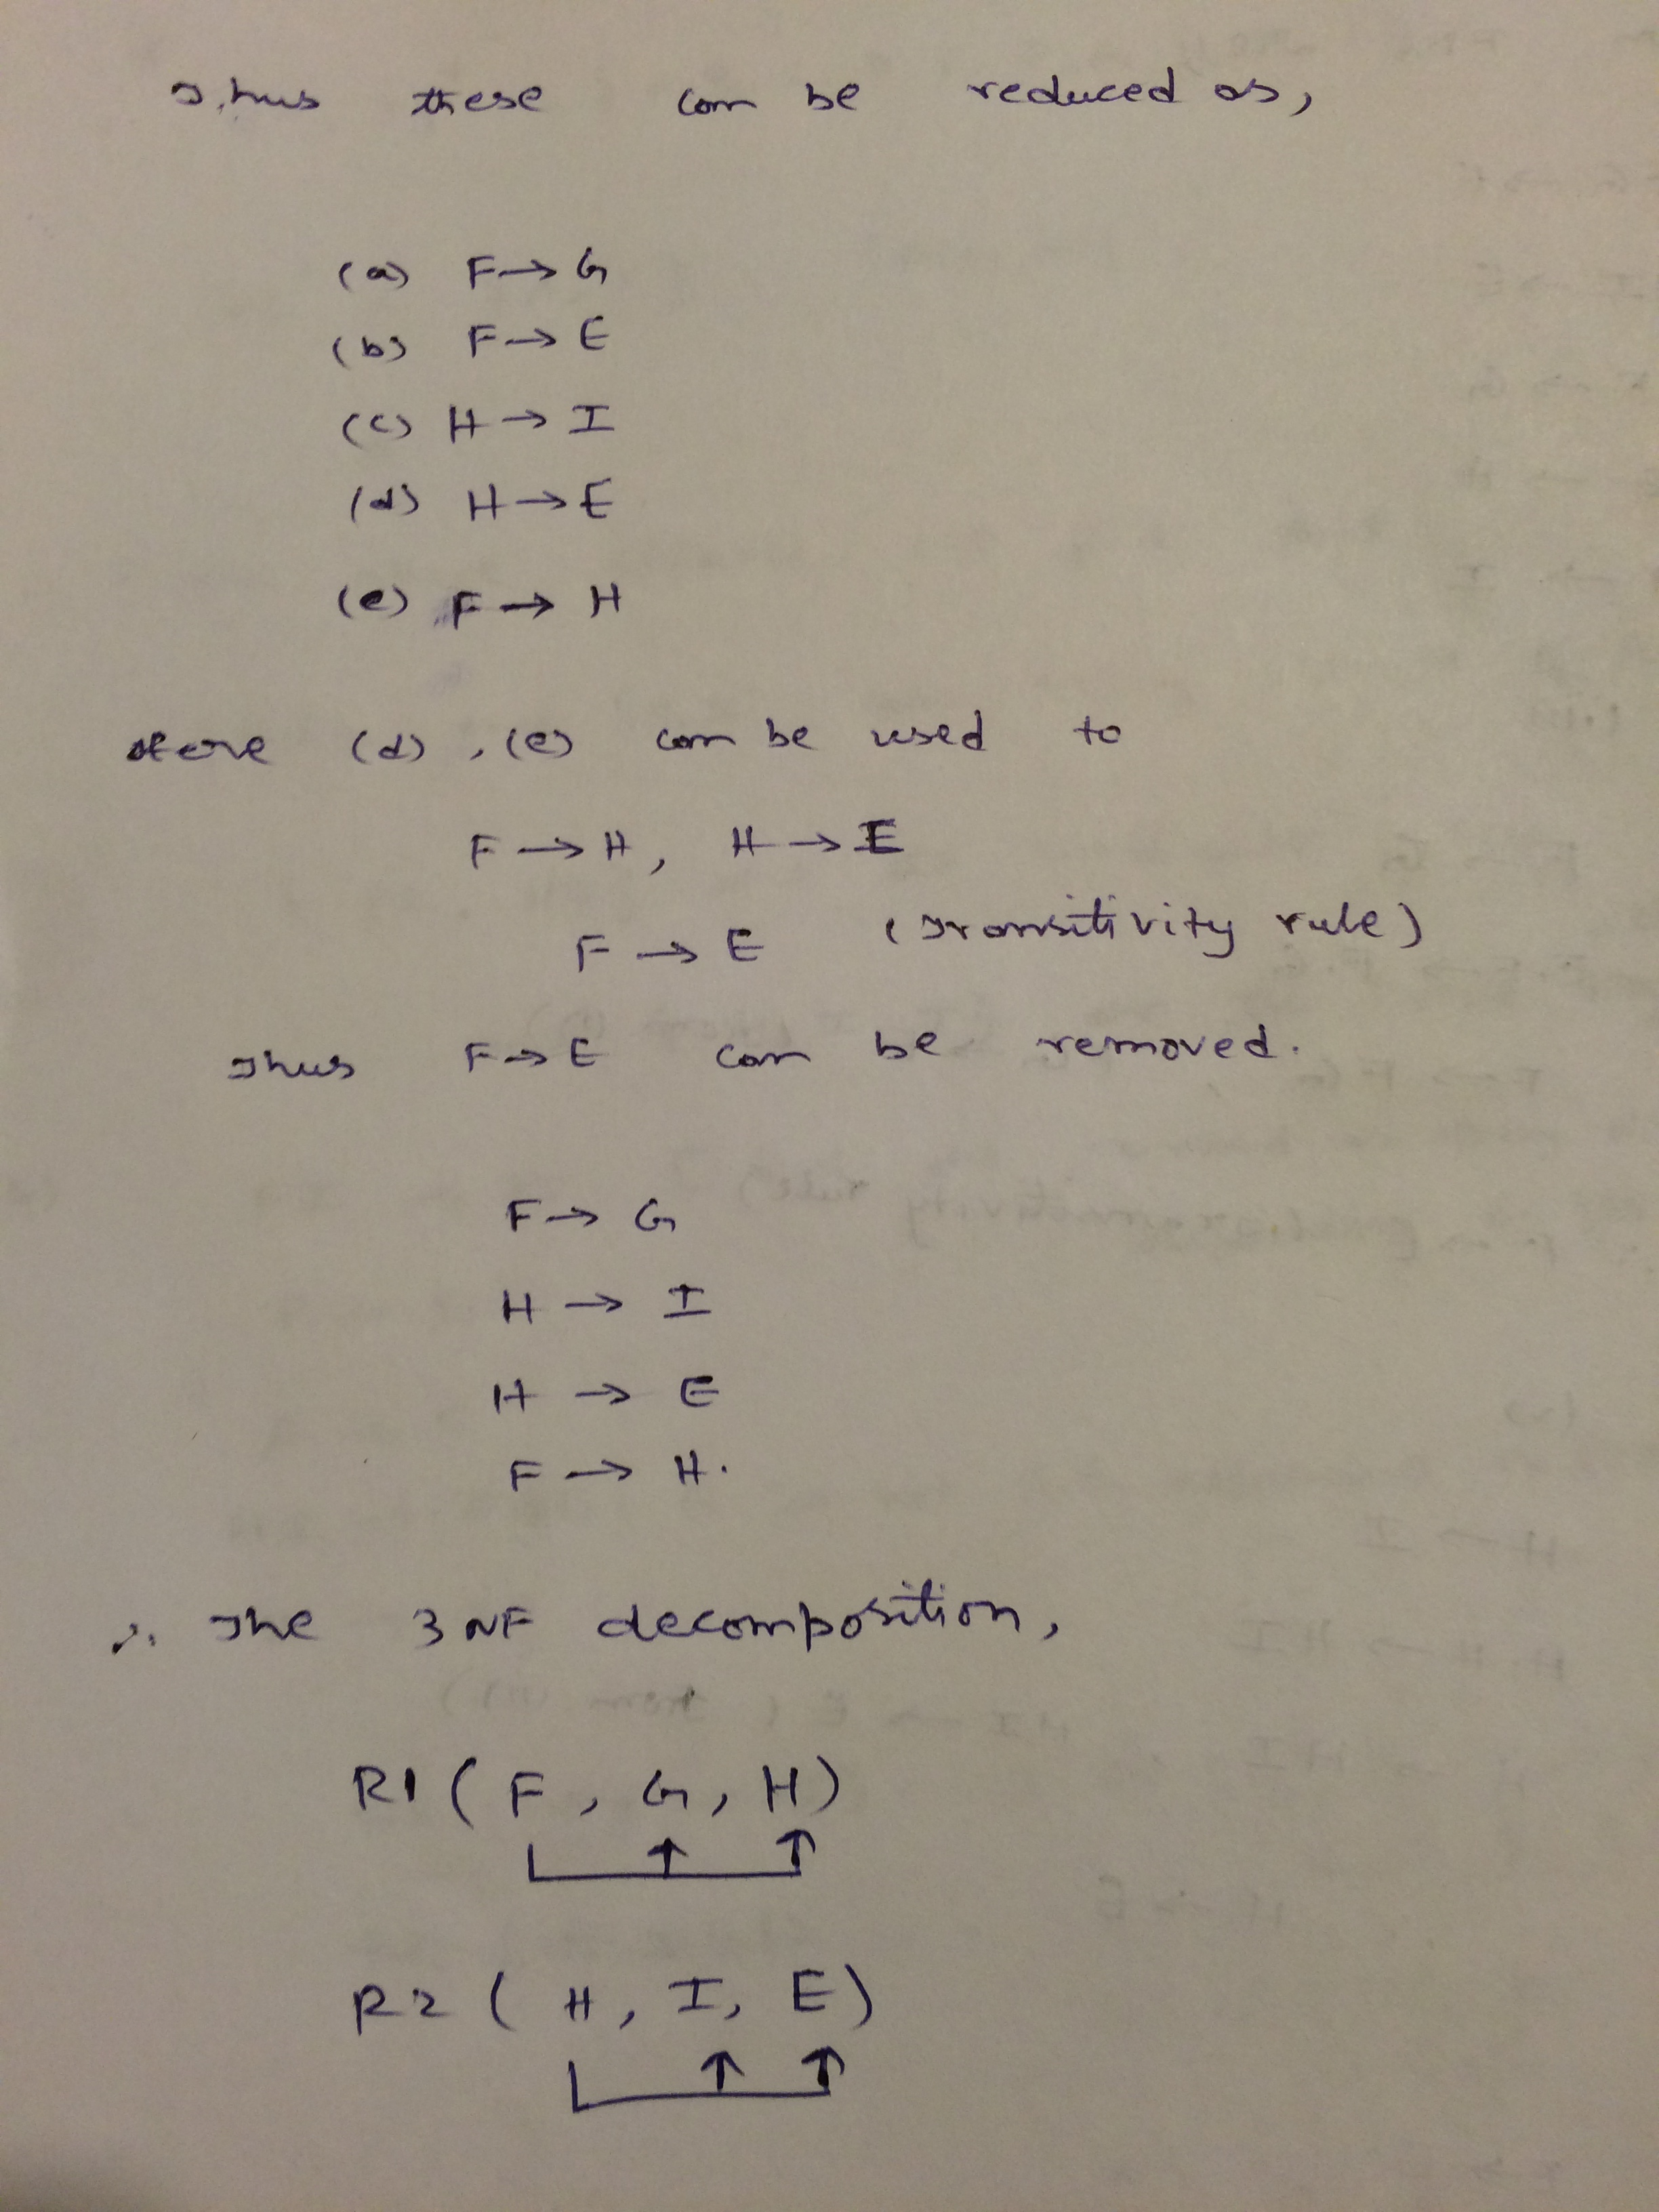 Thus these can be reduced as,
(a) F→G
(b) F→E
(c) H→I
(d) H→E
(e) F→H
Here (d), (e) can be used to
F→H, H→E
F→E (Transitivity rule)
Thus F→E can be removed.
F→G
H→I
H→E
F→H.
∴ The 3NF decomposition,
R1(F, G, H)
R2(H, I, E)